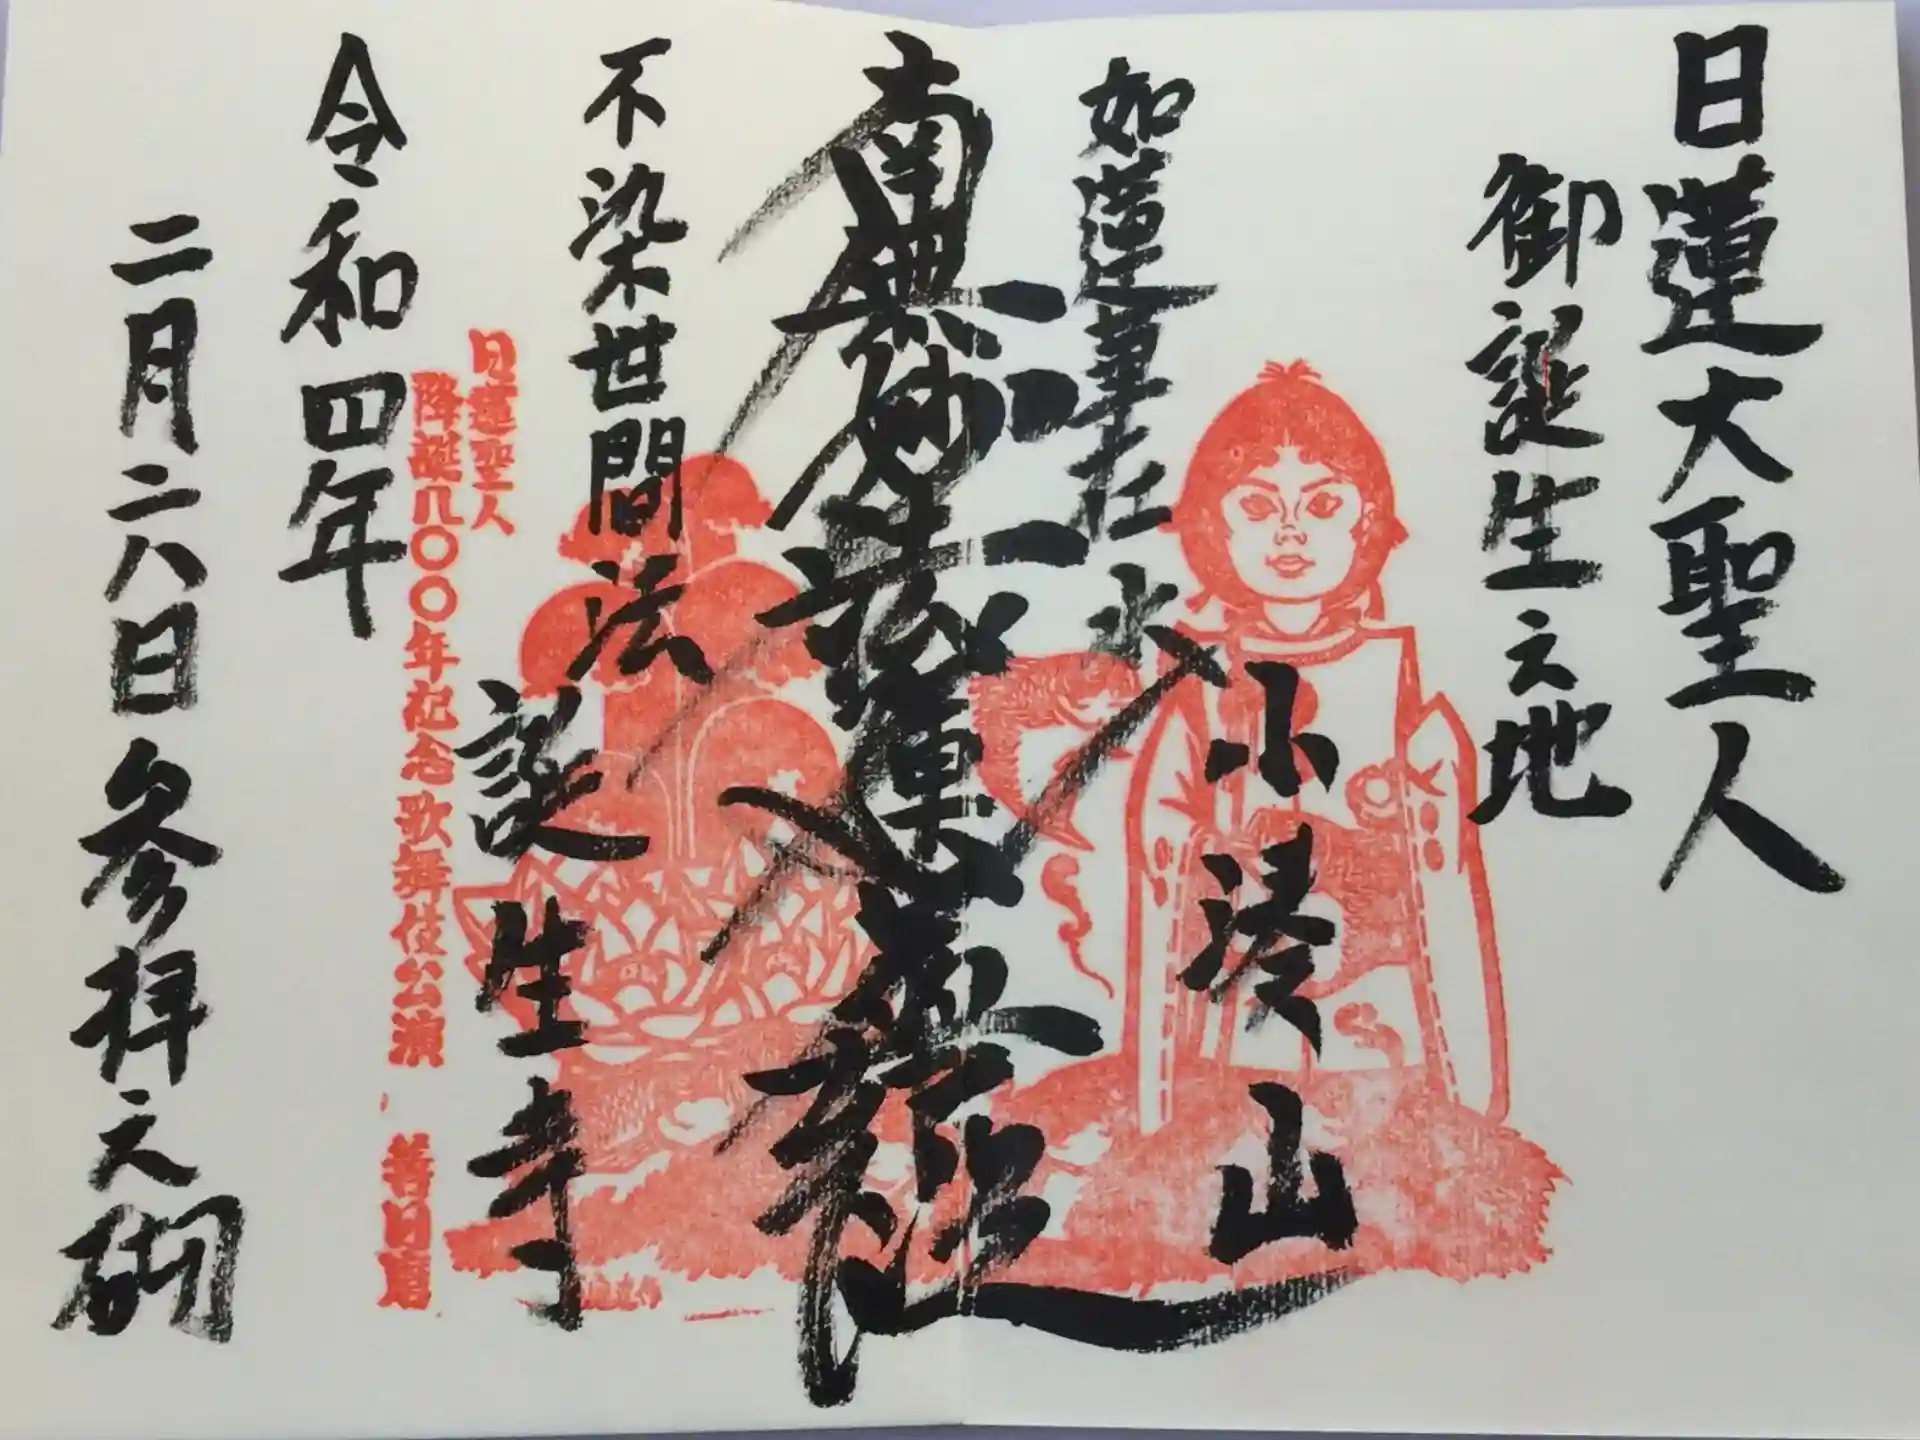 日蓮大聖人
御誕生之地
小湊山
如蓮華在水
南無妙法蓮華経
不染世間法
誕生寺
日蓮聖人
降誕八〇〇年記念歌舞伎公演
善日麿
令和四年
二月二八日参拝之砌